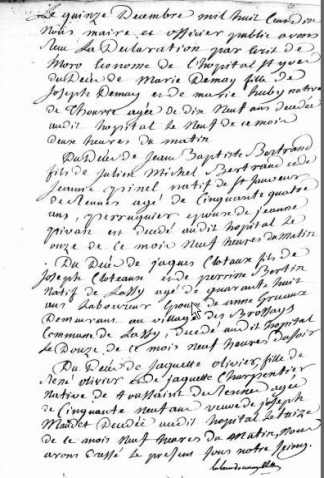 Le quinze Decembre mil huit Cent dix
Nous maire et officier public avons
Reçu La Declaration par Ecrit de
Moro Econome de l'hopital St yves
du Décé de Marie Demay fille de
Joseph Demay et de marie huby native
de Thourie agée de dix Neuf ans decedée
audit hopital le Neuf de ce mois
deux heures du matin
Du Décé de Jean Baptiste Bertrand
fils de Julien Michel Bertrand et de
Jeanne pinel natif de St Sauveur
de Rennes agé de Cinquante quatre
ans, perruquier epoux de jeanne
est decedé audit hopital Le
onze de ce mois Neuf heures du matin
Du Décé de jaques Cloteaux fils de
Joseph Cloteaux et de perrine Bertin
Natif de Lassy agé de quarante huit
ans Laboureur Epoux de anne
Demeurant au village des Brossays
Commune de Lassy, decedé audit hopital
Le Douze de ce mois neuf heures du soir
Du Décé de Jaquette olivier, fille de
René olivier et de jaquette Charpentier
native de toussaint de Rennes agée
de Cinquante neuf ans veuve de joseph
decedée audit hopital le
de ce mois Neuf heures du Matin, Nous
avons le present sous notre Seing